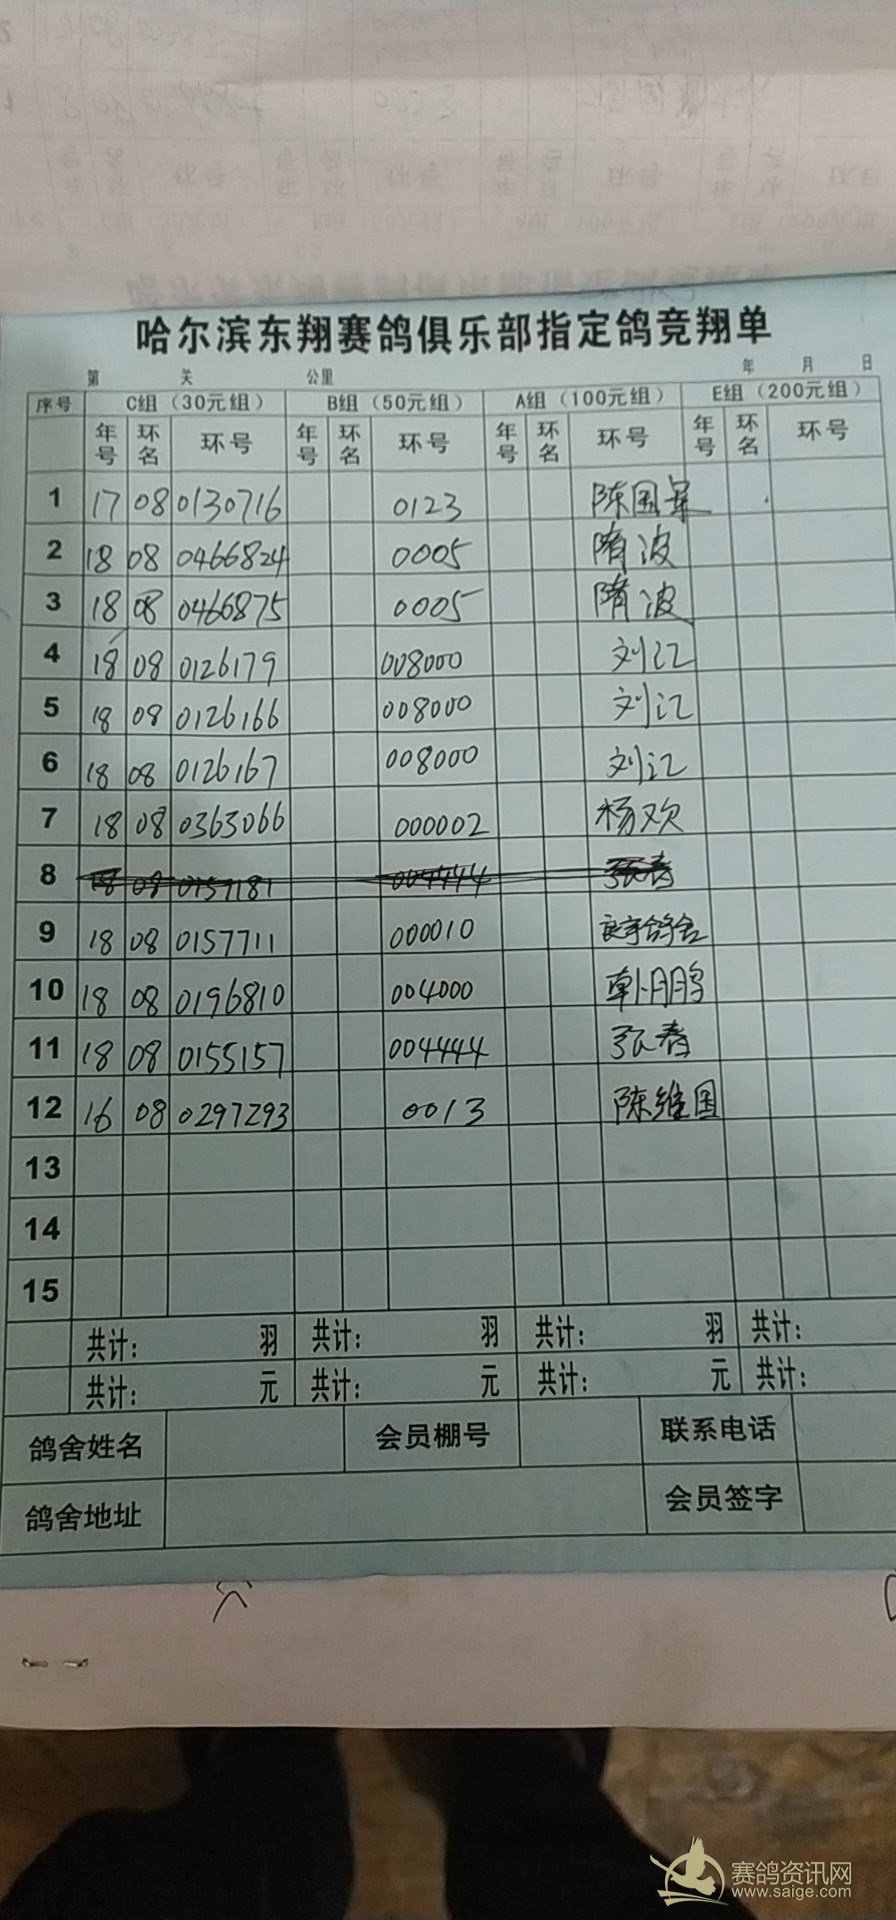 哈尔滨东翔赛鸽俱乐部指定鸽竞翔单
第 关 公里 年 月 日
序号 C组（30元组） B组（50元组） A组（100元组） E组（200元组）
年号 环名 环号 年号 环名 环号 年号 环名 环号 年号 环名 环号
1 17 08 0130716 0123 陈国
2 18 08 0466824 0005 隋波
3 18 08 0466875 0005 隋波
4 18 08 0126179 008000 刘江
5 18 08 0126166 008000 刘江
6 18 08 0126167 008000 刘江
7 18 08 0363066 000002 杨欢
8 18 08 0157181 004444 张春
9 18 08 0157711 000010 良宇鸽舍
10 18 08 0196810 004000 鹏
11 18 08 0155157 004444 张春
12 16 08 0297293 0013 陈维国
13
14
15
共计： 羽 共计： 羽 共计： 羽 共计：
共计： 元 共计： 元 共计： 元 共计：
鸽舍姓名 会员棚号 联系电话
鸽舍地址 会员签字
赛鸽资讯网
www.saige.com